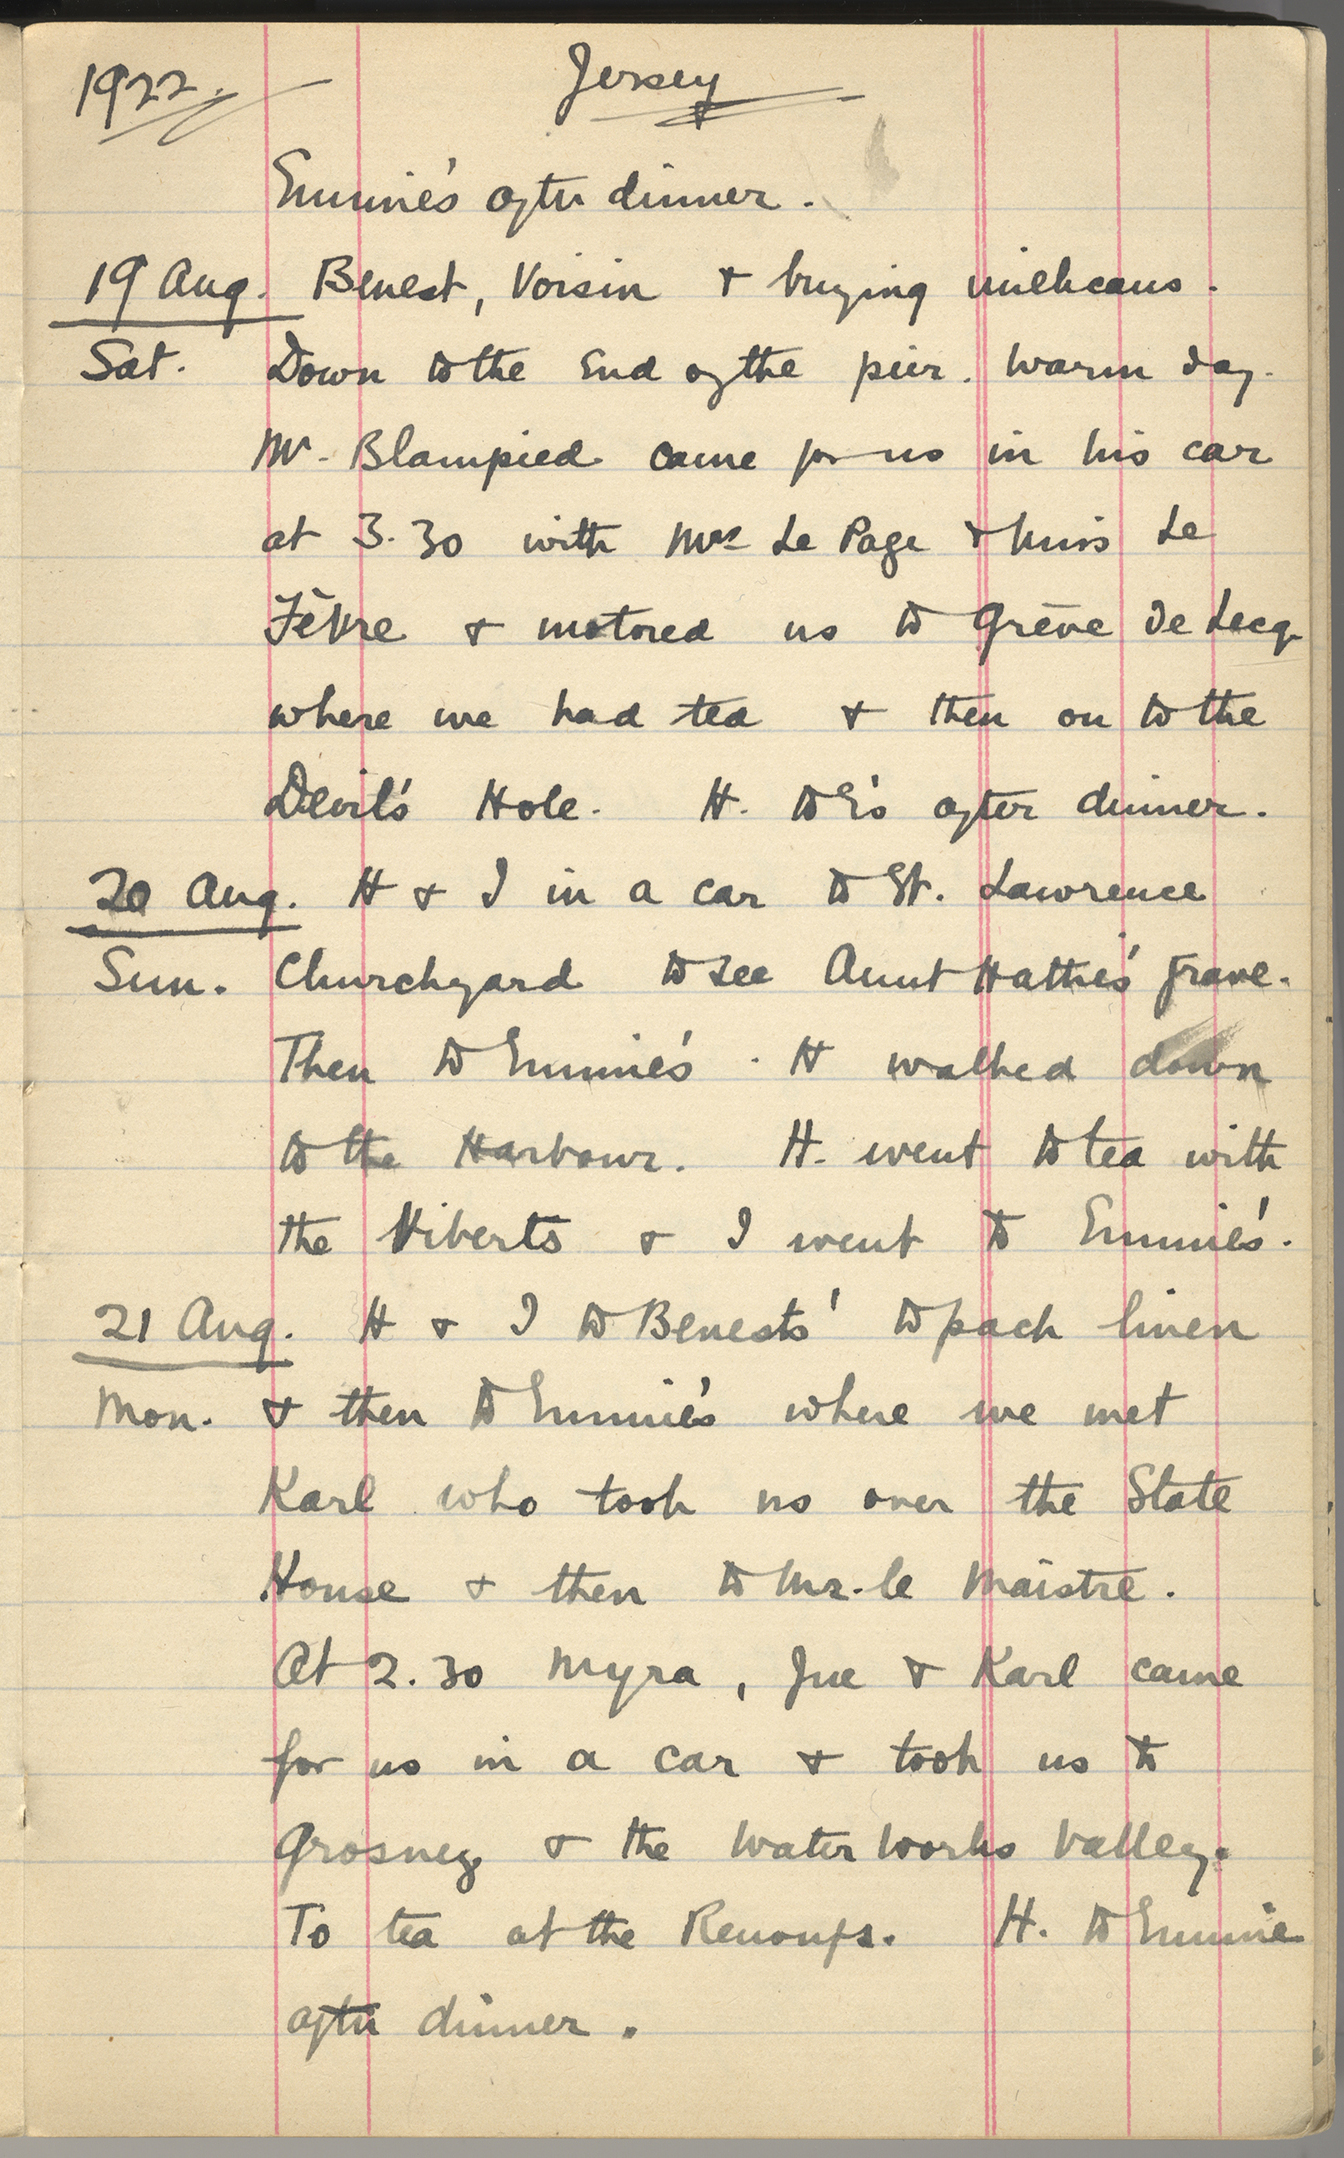 1922. Jersey
Emmie's after dinner.
19 Aug. Benest, Voisin & buying milkcans.
Sat. Down to the end of the pier. Warm day.
Mr. Blampied came for us in his car
at 3.30 with Mrs Le Page & Miss Le
Fêvre & motored us to Grève de Lecq
where we had tea & then on to the
Devil's Hole. H. to E's after dinner.
20 Aug. H & I in a car to St. Lawrence
Sun. Churchyard to see Aunt Hattie's grave.
Then to Emmie's. H walked down
to the Harbour. H. went to tea with
the Hiberts & I went to Emmie's.
21 Aug. H & I to Benests' to pack linen
Mon. & then to Emmie's where we met
Karl who took us over the State
House & then to Mr. le Maistre.
At 2.30 Myra, Jue & Karl came
for us in a car & took us to
Grosnez & the Water Works Valley.
To tea at the Renoufs. H. to Emmie
after dinner.